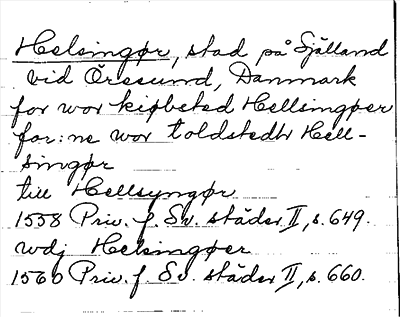 Helsingør, stad på Själland
vid Öresund, Danmark
for wor kiøbsted Hellsingøer
for:ne wor toldstedtr Hell-
singør
till Hellsyngør
1558 Priv. f. Sv. städer II, s. 649.
wdj Helsingøer
1560 Priv. f. Sv. städer II, s. 660.